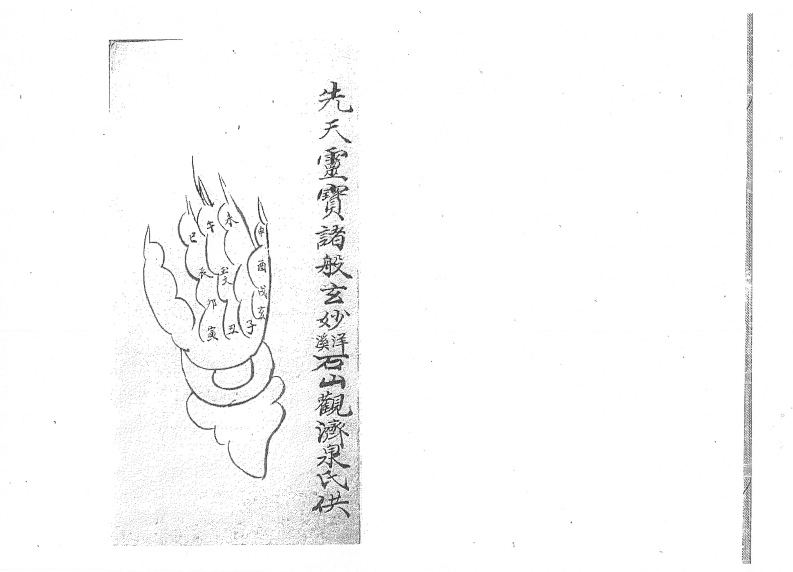 先天靈寶諸般玄妙洋溪石山觀濟泉氏供
未
午
巳
申
辰
酉
卯
戌
亥
寅
丑
子